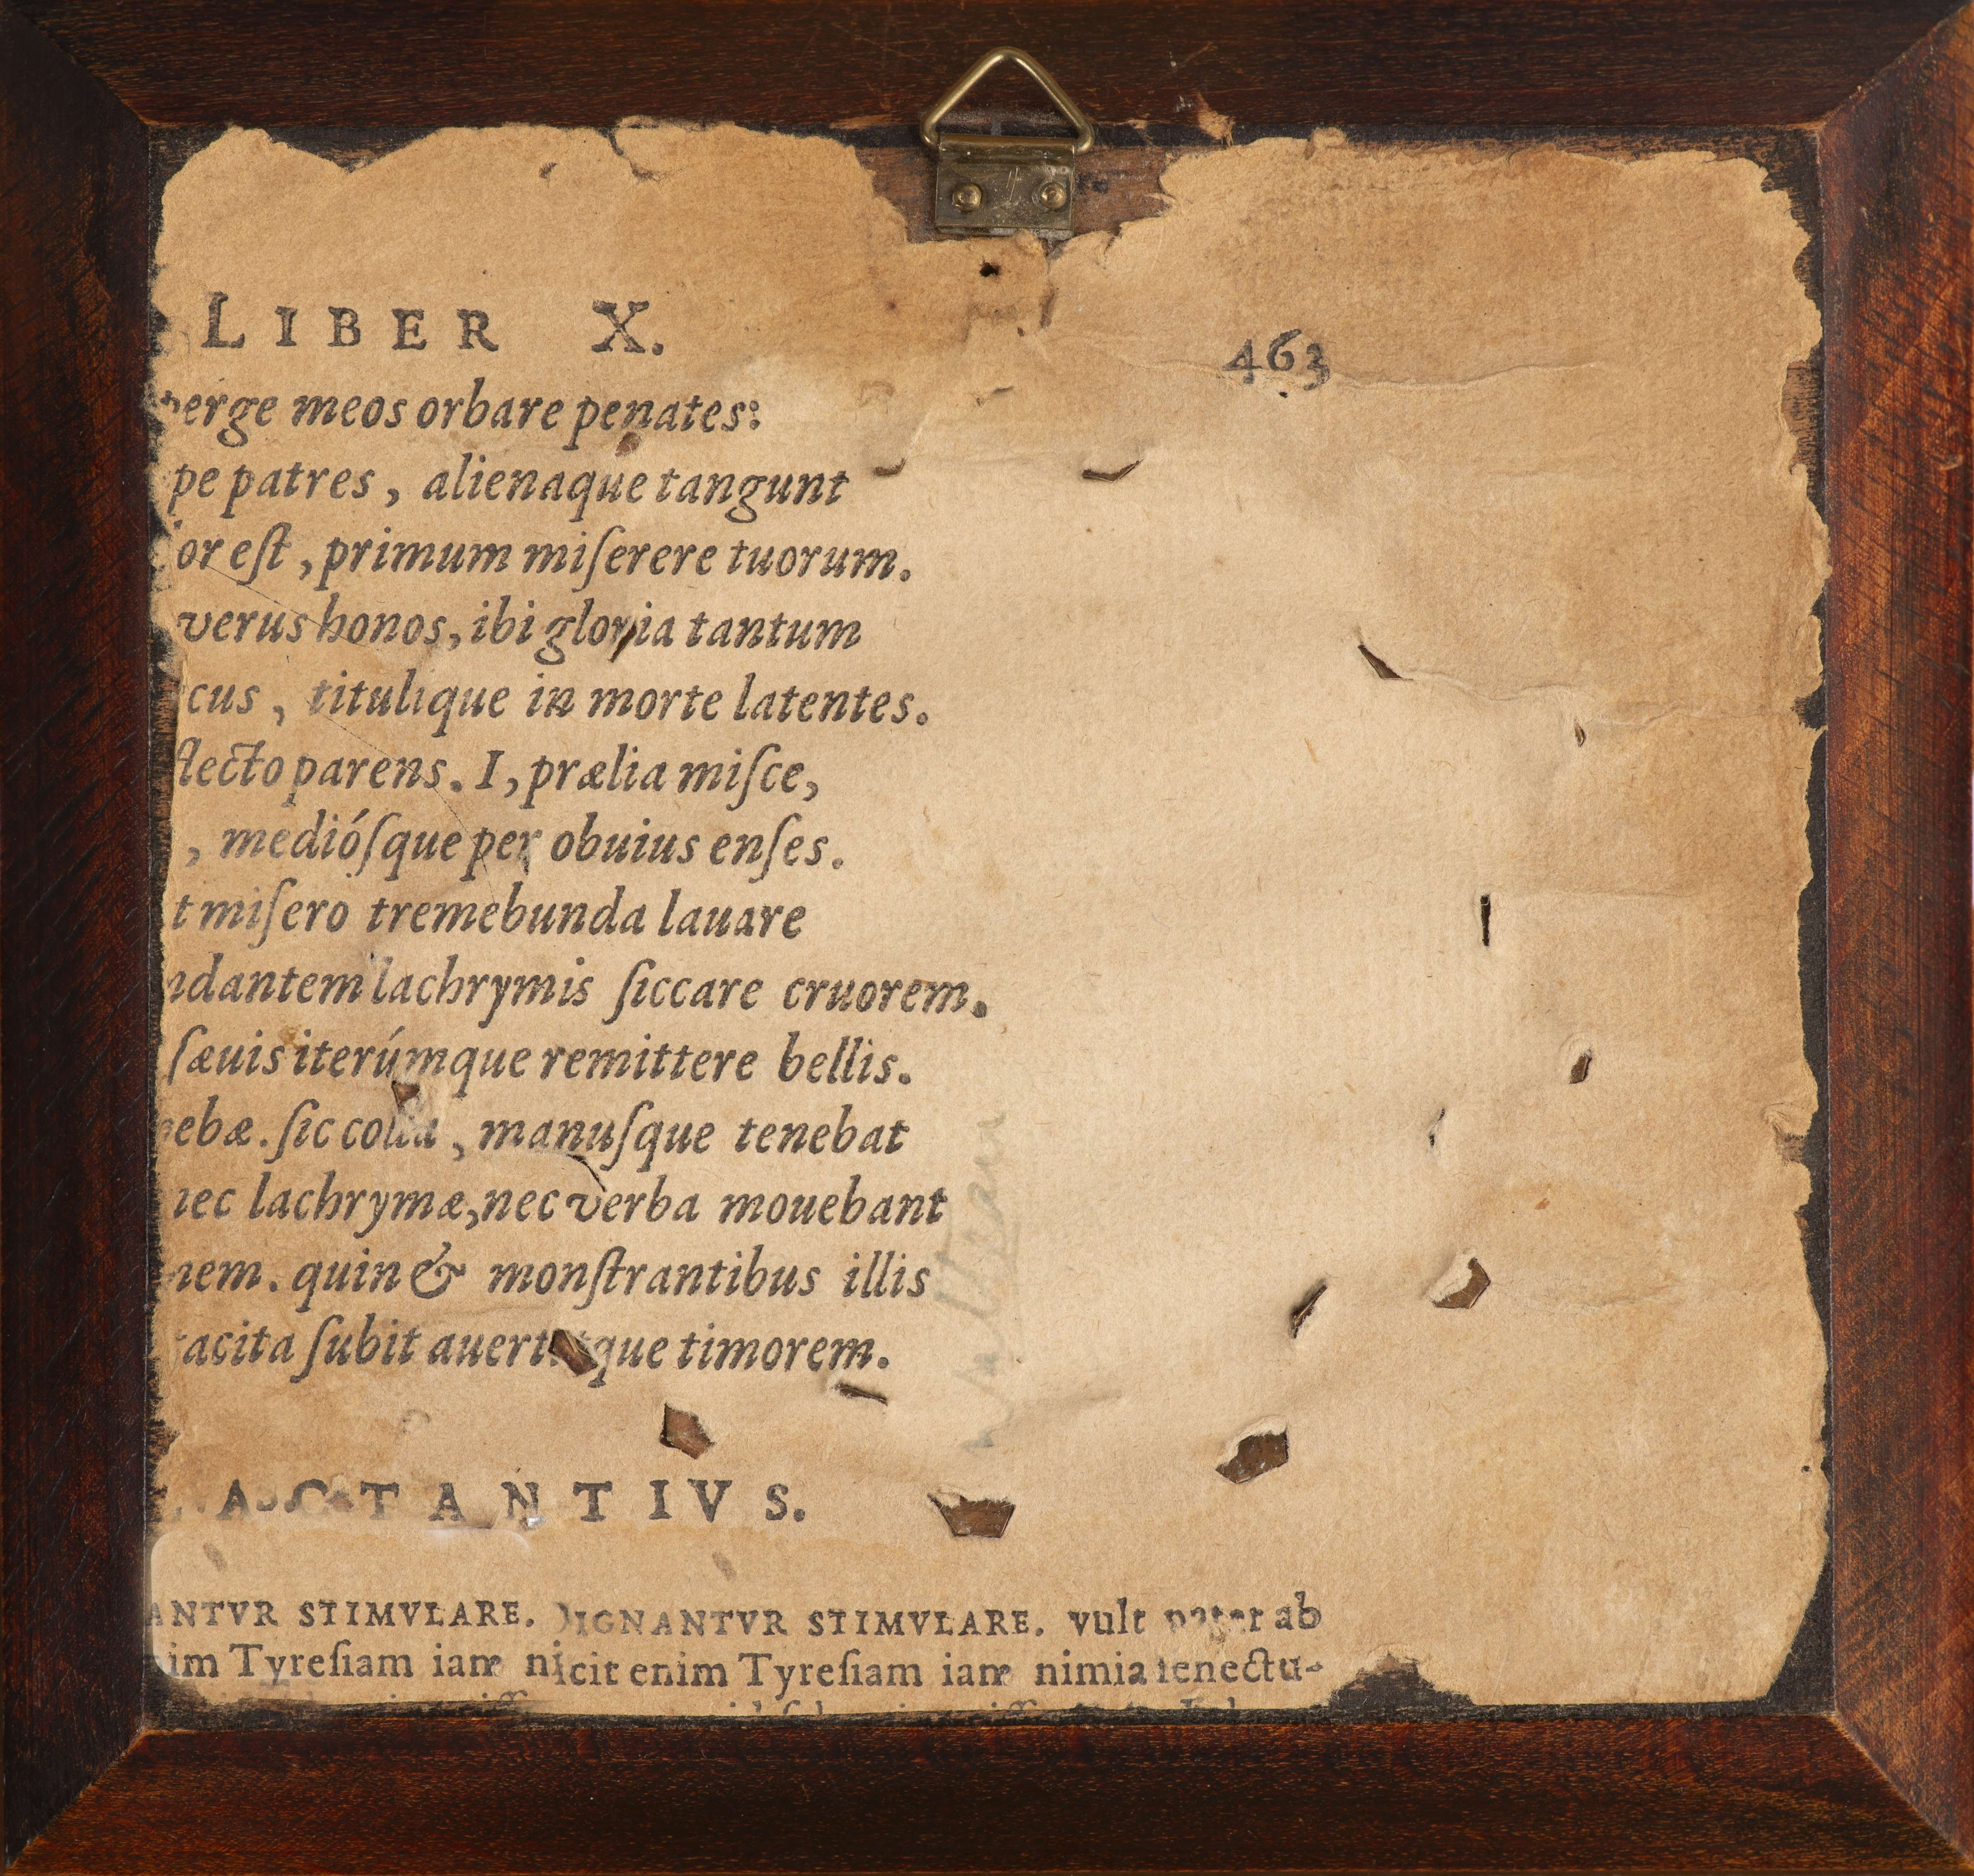 LIBER X.
463
perge meos orbare penates:
pe patres, alienaque tangunt
or eſt, primum miſerere tuorum.
verus honos, ibi gloria tantum
cus, titulique in morte latentes.
flecto parens. I, prælia miſce,
, medióſque per obuius enſes.
t miſero tremebunda lauare
ndantem lachrymis ſiccare cruorem.
ſæuis iterúmque remittere bellis.
ebæ. ſic colla, manuſque tenebat
nec lachrymæ, nec verba mouebant
nem. quin & monſtrantibus illis
tacita ſubit auertitque timorem.
LACTANTIVS.
ANTVR STIMVLARE. IGNANTVR STIMVLARE. vult pater ab
im Tyreſiam iam ni cit enim Tyreſiam iam nimia ſenectu-